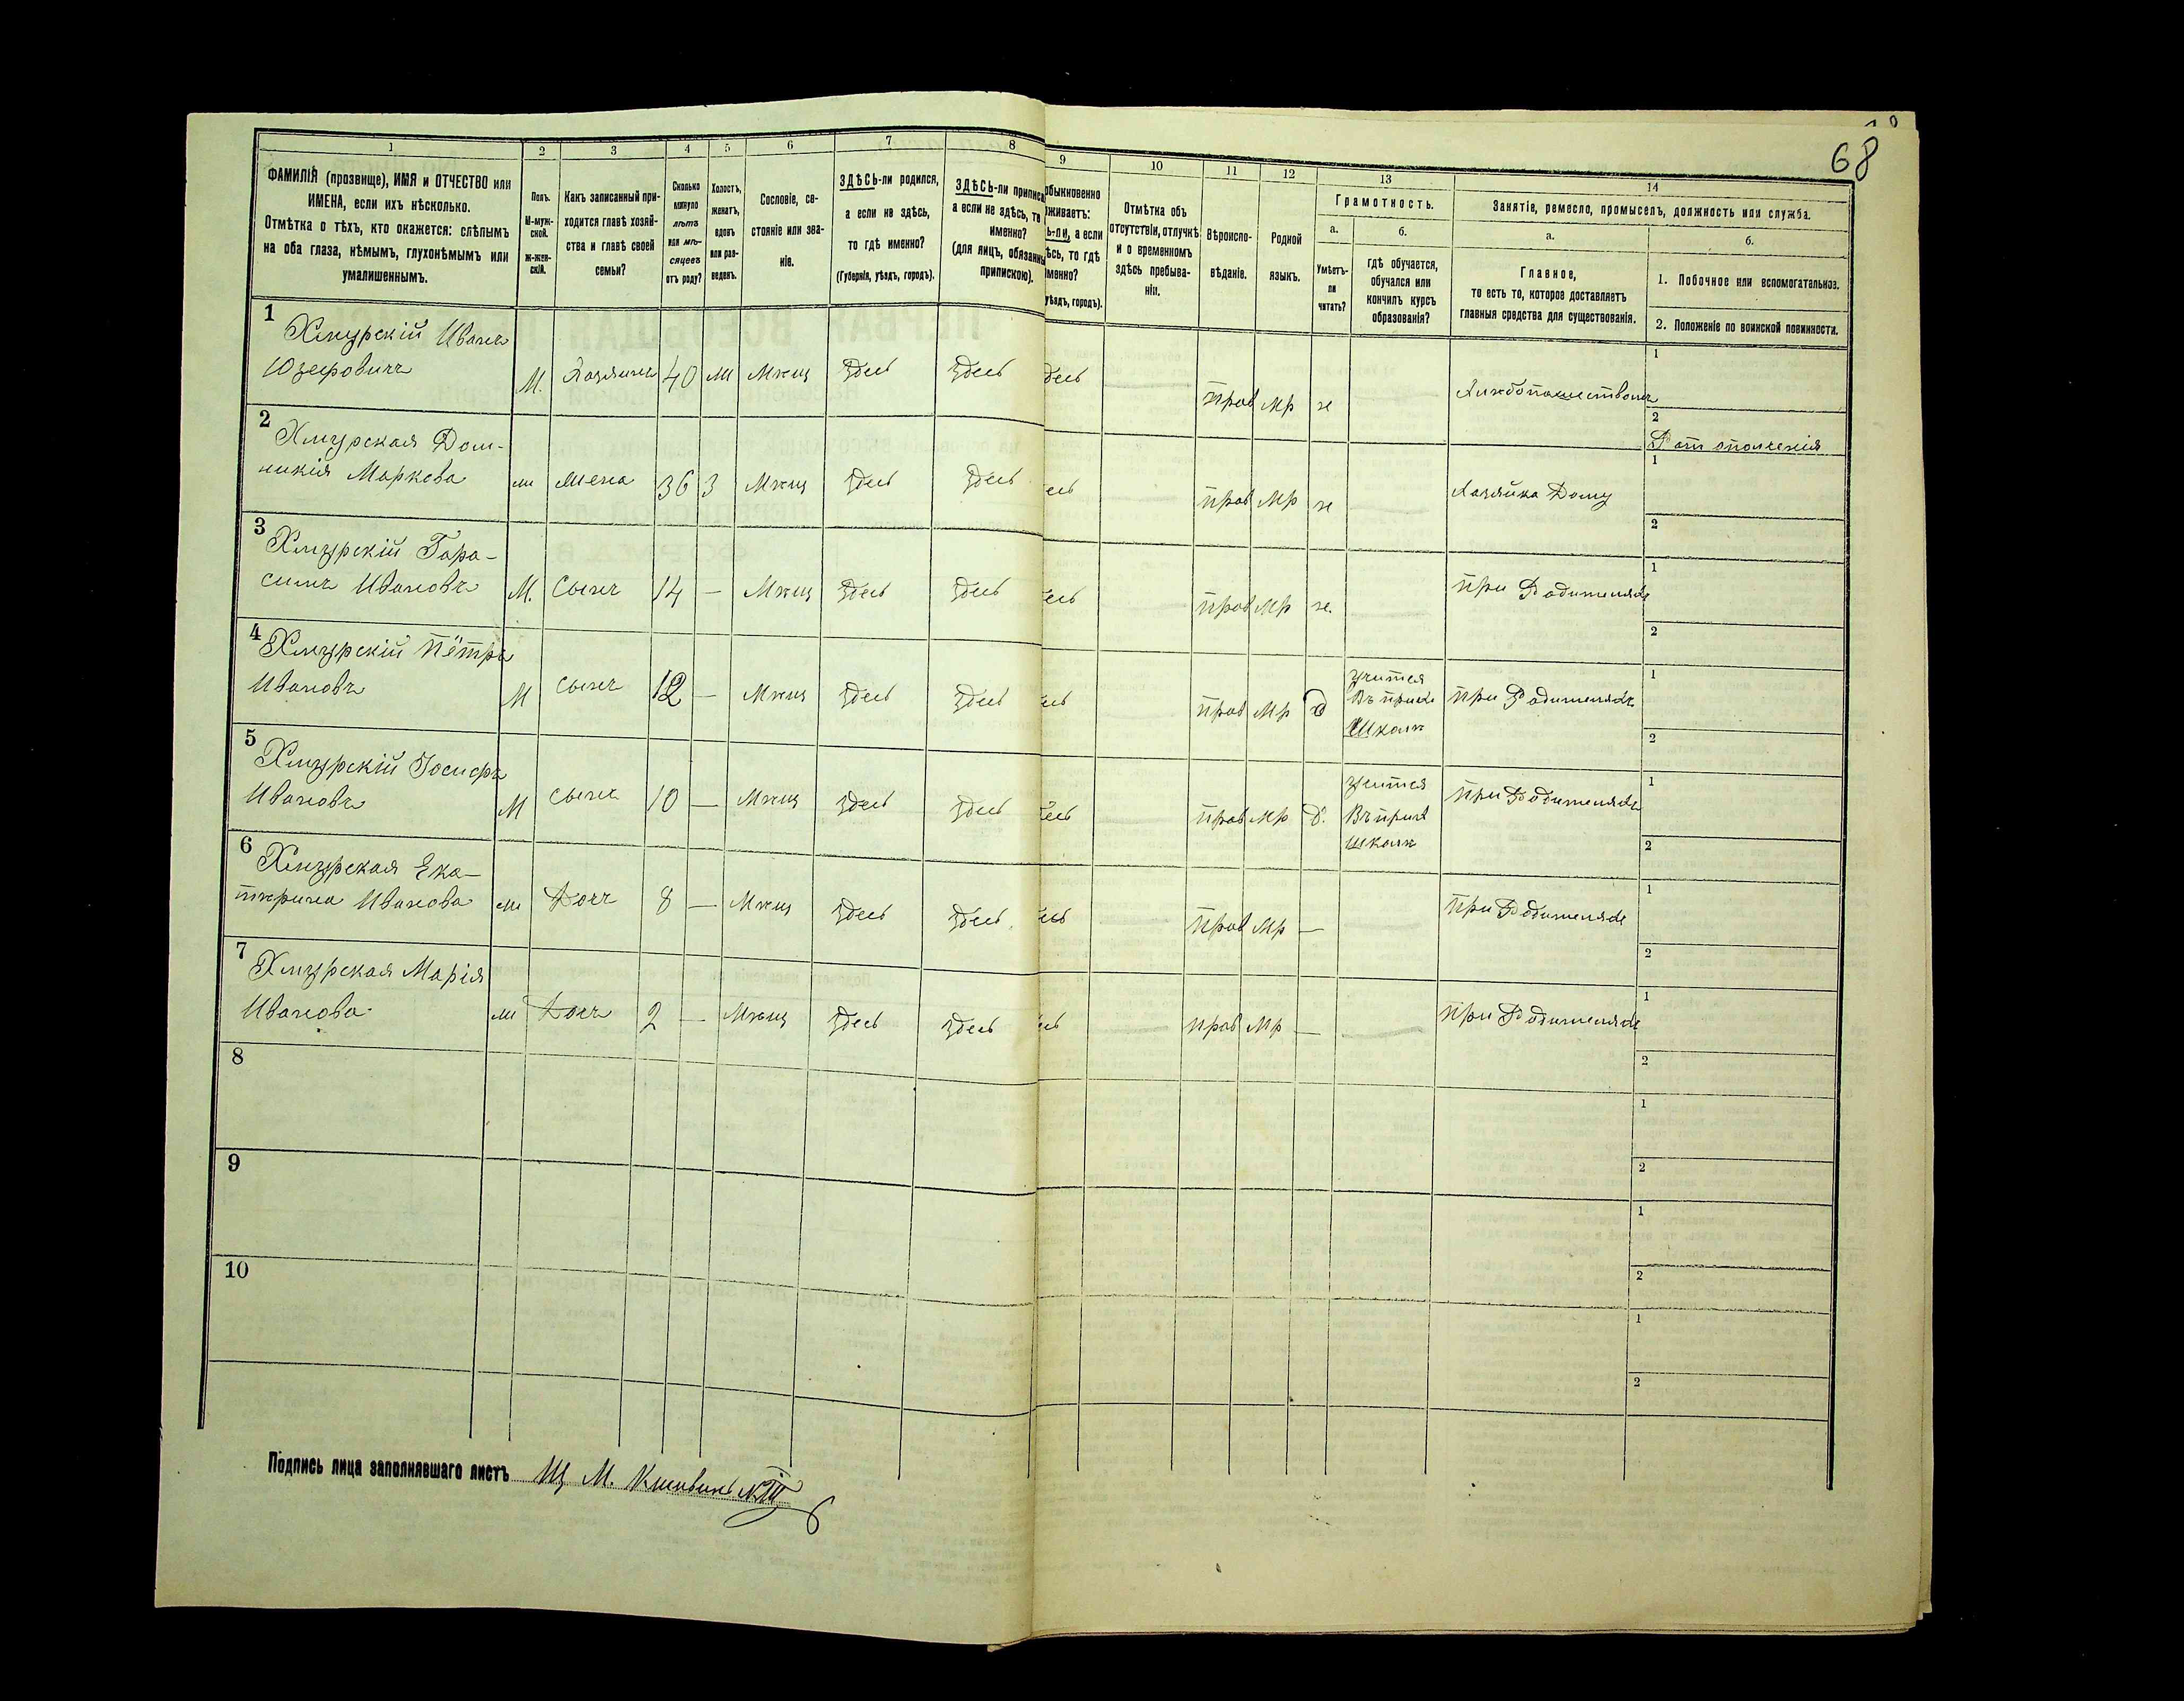 68
1
2
3
4
5
6
7
8
9
10
11
12
13
14
ФАМИЛІЯ (прозвище), ИМЯ и ОТЧЕСТВО или
ИМЕНА, если ихъ нѣсколько.
Отмѣтка о тѣхъ, кто окажется: слѣпымъ
на оба глаза, нѣмымъ, глухонѣмымъ или
умалишеннымъ.
Полъ.
М-муж-
ской.
Ж-жен-
скій.
Какъ записанный при-
ходится главѣ хозяй-
ства и главѣ своей
семьи?
Сколько
минуло
лѣтъ
или мѣ-
сяцевъ
отъ роду?
Холостъ,
женатъ,
вдовъ
или раз-
веденъ.
Сословіе, со-
стояніе или зва-
ніе.
ЗДѢСЬ-ли родился,
а если не здѣсь,
то гдѣ именно?
(Губернія, уѣздъ, городъ).
ЗДѢСЬ-ли приписа
а если не здѣсь, то
именно?
(для лицъ, обязанны
припискою).
обыкновенно
живаетъ:
ь-ли, а если
ѣсь, то гдѣ
менно?
уѣздъ, городъ).
Отмѣтка объ
отсутствіи, отлучкѣ
и о временномъ
здѣсь пребыва-
ніи.
Вѣроиспо-
вѣданіе.
Родной
языкъ.
Грамотность.
а.
Умѣетъ-
ли
читать?
б.
гдѣ обучается,
обучался или
кончилъ курсъ
образованія?
Занятіе, ремесло, промыселъ, должность или служба.
а.
Главное,
то есть то, которое доставляетъ
главныя средства для существованія.
б.
1. Побочное или вспомогательное.
2. Положеніе по воинской повинности.
1
Хмурскій Иванъ
Юзефовичъ
М. Хозяинъ 40 ж Мѣщ здесь здесь десь прав мр н Хлѣбопашествомъ
1
2 Рат ополченія
2
Хмурская Дом-
никія Маркова
ж жена 36 з Мѣщ здесь здесь есь прав мр н Хозяйка Дому
1
2
3
Хмурскій Гара-
симъ Ивановъ
М. Сынъ 14 — Мѣщ здесь здесь есь прав мр н. при Родителяхъ
1
2
4
Хмурскій Пётръ
Ивановъ
М сынъ 12 — Мѣщ здесь здесь есь прав мр д
учится
Въ прих
Школѣ
при Родителяхъ
1
2
5
Хмурскій Іосифъ
Ивановъ
М сынъ 10 — Мѣщ здесь здесь есь прав мр д.
учится
Въ прих
школѣ
при Родителяхъ
1
2
6
Хмурская Ека-
терина Иванова
ж Дочъ 8 — Мѣщ здесь здесь есь прав мр — при Родителях
1
2
7
Хмурская Марія
Иванова
ж Дочъ 2 — Мѣщ здесь здесь есь прав мр — при Родителях
1
2
8
1
2
9
1
2
10
1
2
Подпись лица заполнявшаго листъ